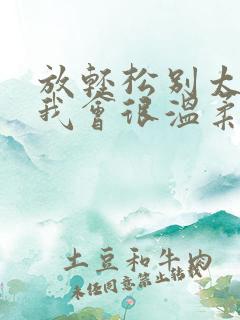 放轻松别太
我会很温柔
土豆和牛肉
未经同意禁止转载